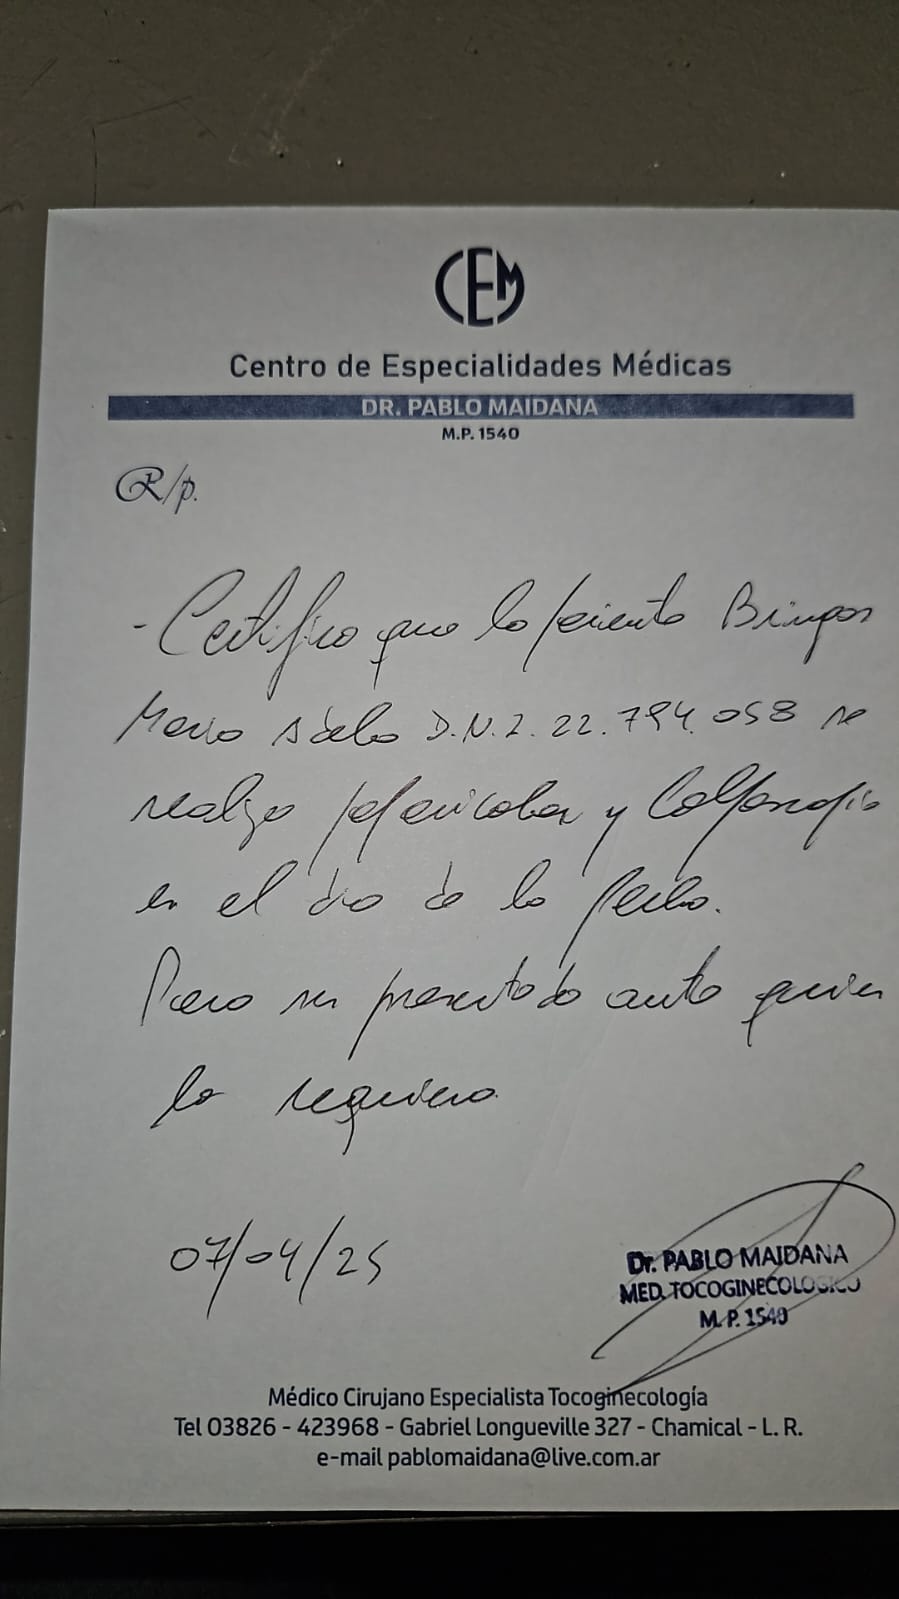 CEM
Centro de Especialidades Médicas
DR. PABLO MAIDANA
M.P. 1540
R/p.
- Certifico que la paciente
Maria D.N.I. 22.794.058 se
realizo papanicolau y Colposcopia
en el dia de la fecha.
Para ser presentado ante quien
lo requiera
07/04/25
Dr. PABLO MAIDANA
MED. TOCOGINECOLOGICO
M.P. 1540
Médico Cirujano Especialista Tocoginecología
Tel 03826 - 423968 - Gabriel Longueville 327 - Chamical - L. R.
e-mail pablomaidana@live.com.ar